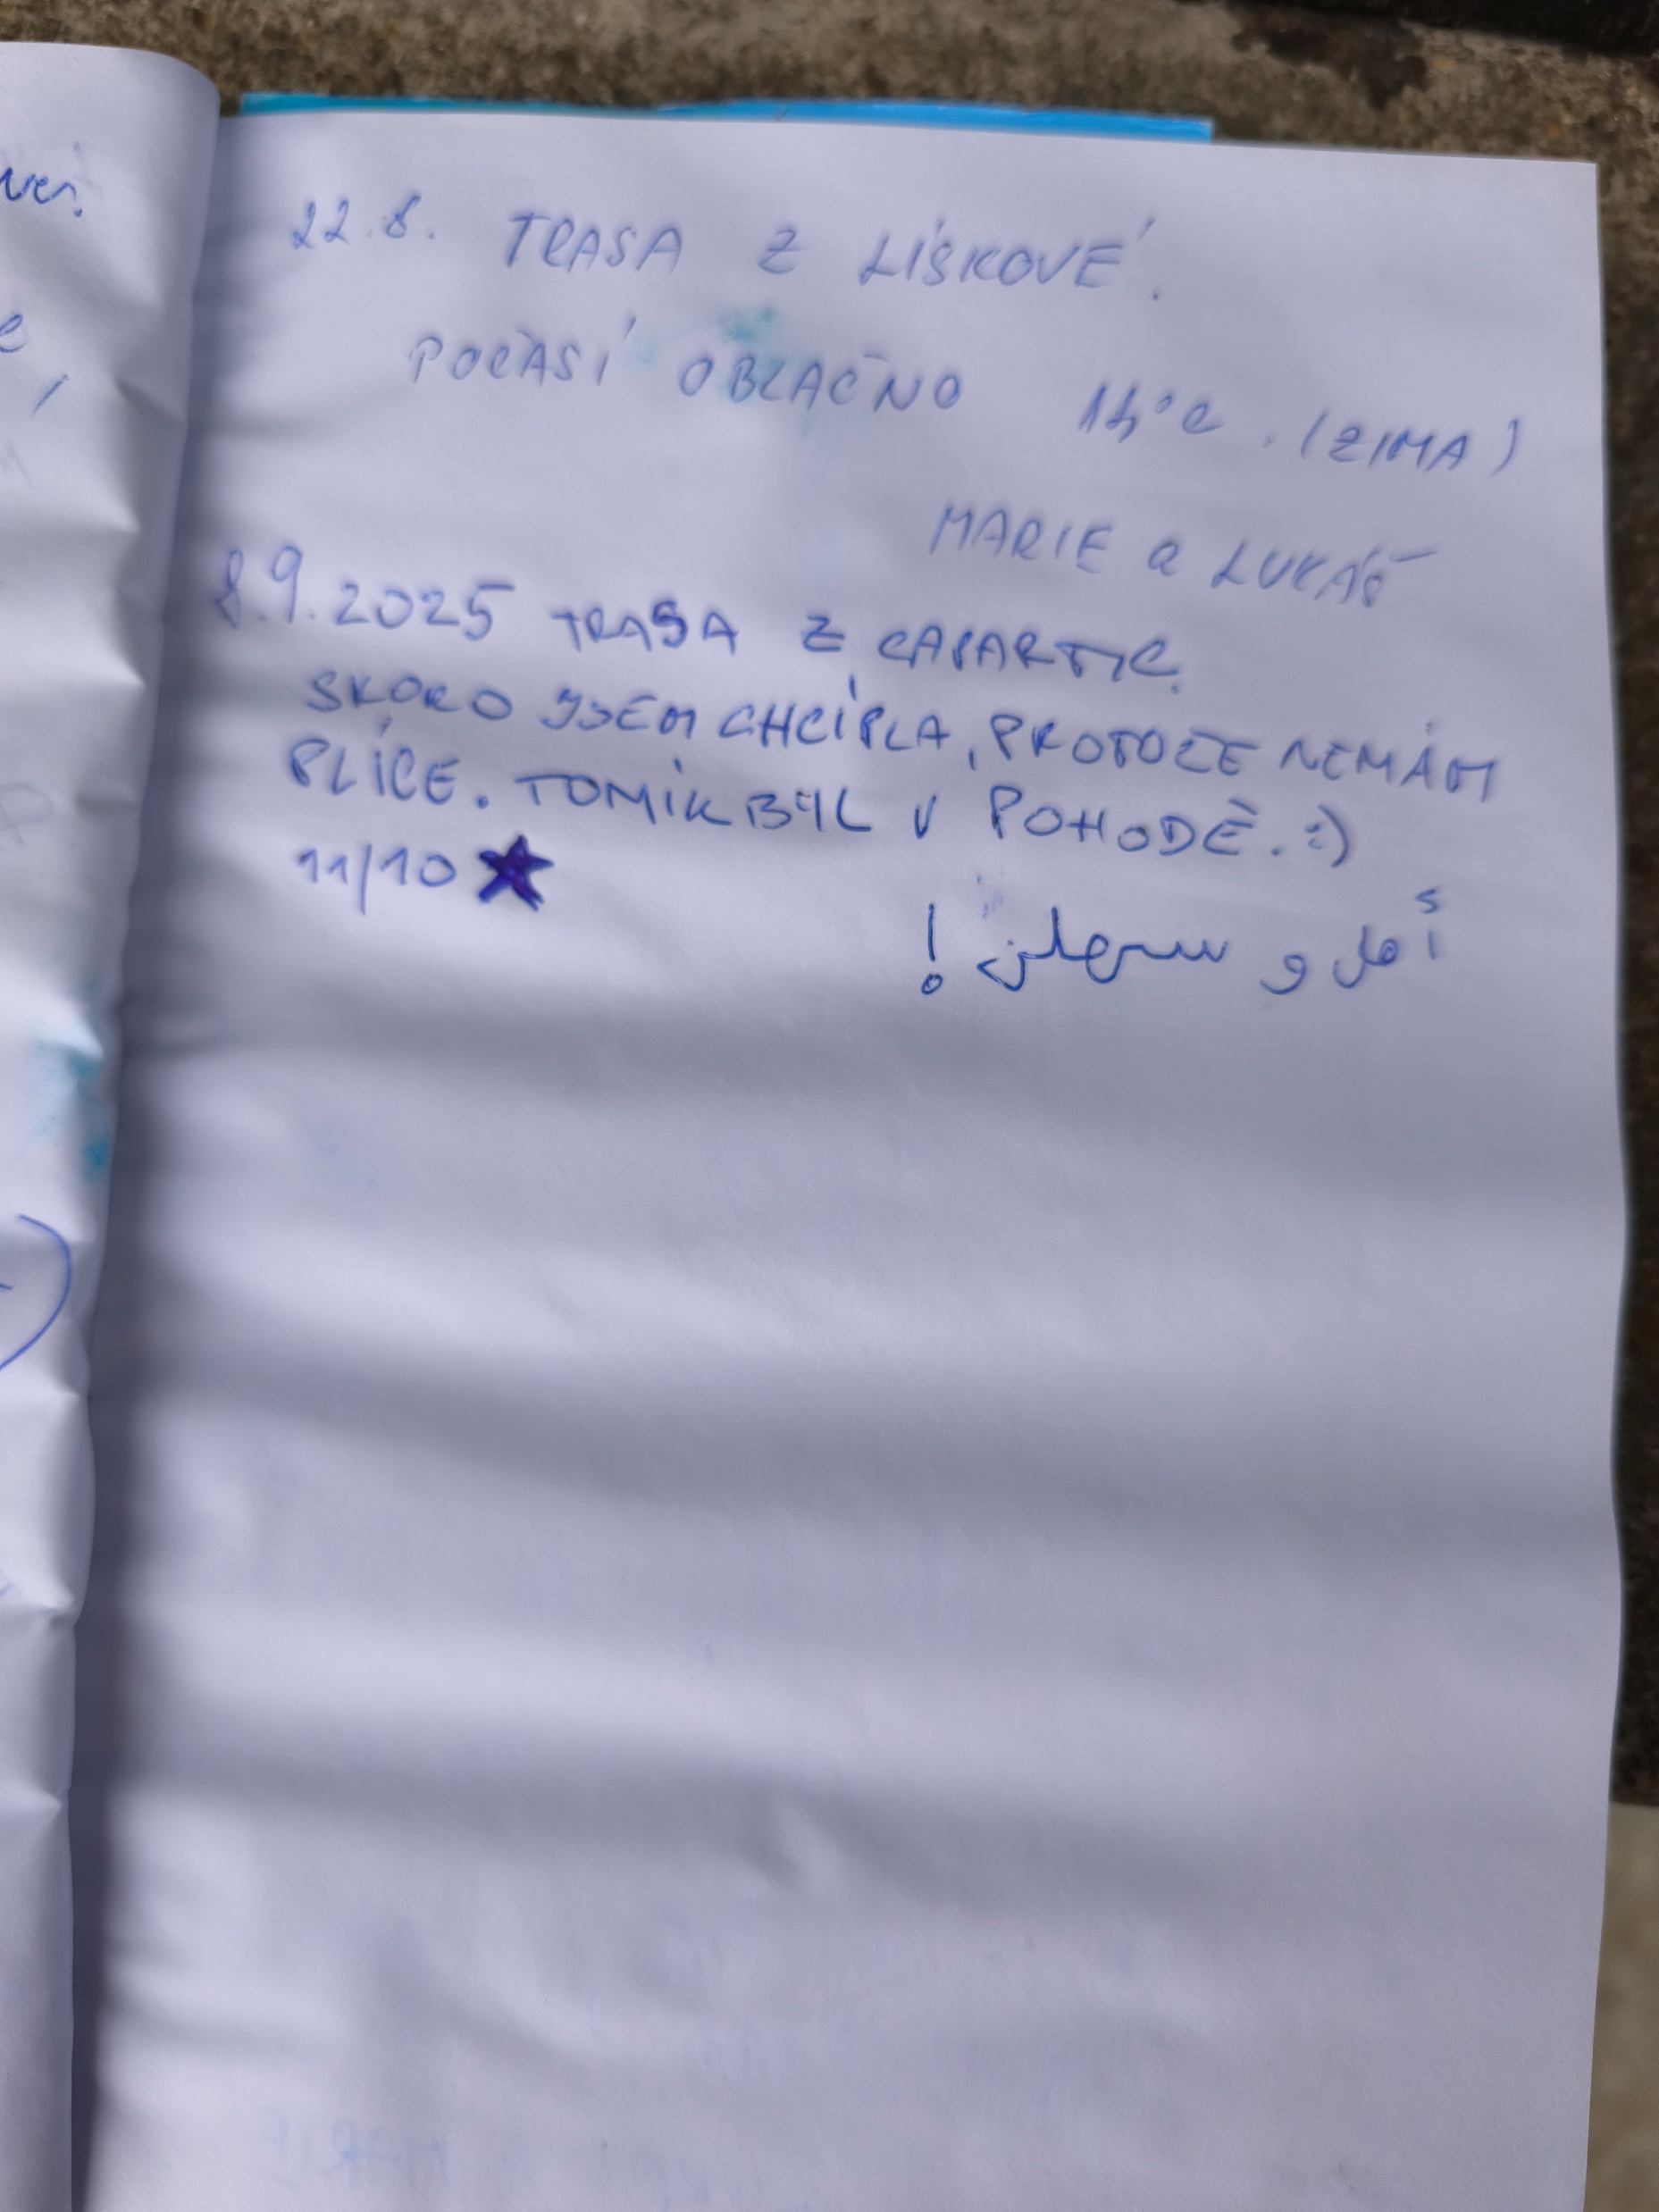 ven.
e,
22.8. TRASA Z LÍSKOVÉ.
POČASÍ OBLAČNO 14°C. (ZIMA)
MARIE a LUKÁŠ
8.9.2025 TRASA Z CAPARTIC.
SKORO JSEM CHCÍPLA, PROTOŽE NEMÁM
PLÍCE. TOMÍK BYL V POHODĚ. :)
11/10 ★
أهل و سهلن !